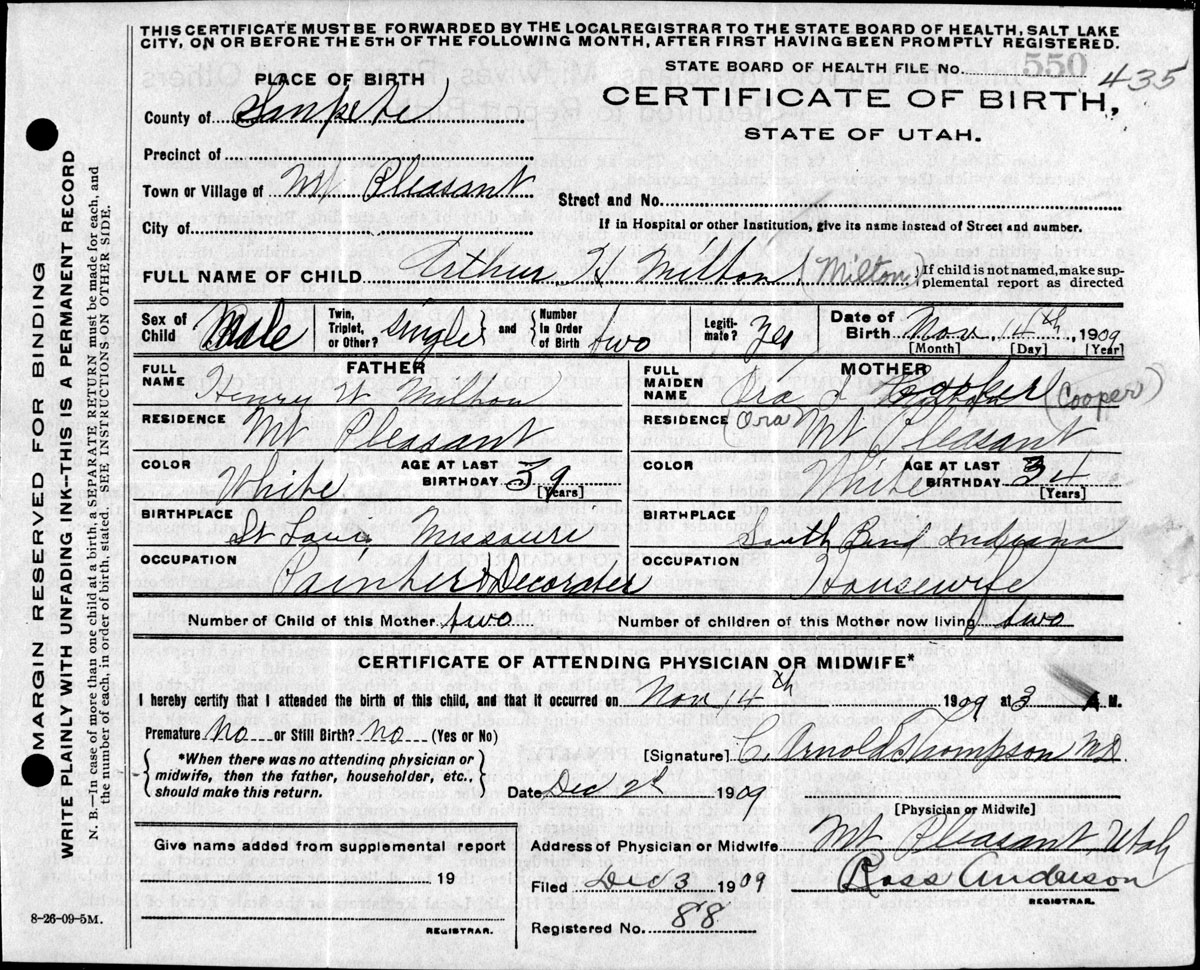 THIS CERTIFICATE MUST BE FORWARDED BY THE LOCAL REGISTRAR TO THE STATE BOARD OF HEALTH, SALT LAKE
CITY, ON OR BEFORE THE 5TH OF THE FOLLOWING MONTH, AFTER FIRST HAVING BEEN PROMPTLY REGISTERED.
STATE BOARD OF HEALTH FILE No. 550 435
PLACE OF BIRTH
CERTIFICATE OF BIRTH,
STATE OF UTAH.
County of Sanpete
Precinct of
Town or Village of Mt Pleasant
Street and No.
City of
If in Hospital or other Institution, give its name instead of Street and number.
FULL NAME OF CHILD Arthur H Milton (Milton) } If child is not named, make sup-
plemental report as directed
Sex of Child Male Twin, Triplet, or Other? Single and Number In Order of Birth two Legiti-mate? Yes Date of Birth Nov 14th, 1909
[Month] [Day] [Year]
FATHER
FULL NAME Henry W Milton
RESIDENCE Mt Pleasant
COLOR White AGE AT LAST BIRTHDAY 39
[Years]
BIRTHPLACE St Louis Missouri
OCCUPATION Painter & Decorater
MOTHER
FULL MAIDEN NAME Ora Cooper (Cooper)
RESIDENCE (Ora) Mt Pleasant
COLOR White AGE AT LAST BIRTHDAY 34
[Years]
BIRTHPLACE South Bend Indiana
OCCUPATION Housewife
Number of Child of this Mother two Number of children of this Mother now living two
CERTIFICATE OF ATTENDING PHYSICIAN OR MIDWIFE*
I hereby certify that I attended the birth of this child, and that it occurred on Nov 14th 1909 at 3 A M.
Premature No or Still Birth? No (Yes or No)
[Signature] C. Arnold Thompson MD
*When there was no attending physician or
midwife, then the father, householder, etc.,
should make this return.
Date Dec 2d 1909
[Physician or Midwife]
Give name added from supplemental report
19
REGISTRAR.
Address of Physician or Midwife Mt Pleasant, Utah
Filed Dec 3 1909 Ross Anderson
REGISTRAR.
Registered No. 88
8-26-09-5M.
MARGIN RESERVED FOR BINDING
WRITE PLAINLY WITH UNFADING INK--THIS IS A PERMANENT RECORD
N. B.—In case of more than one child at a birth, a SEPARATE RETURN must be made for each, and
the number of each, in order of birth, stated. SEE INSTRUCTIONS ON OTHER SIDE.